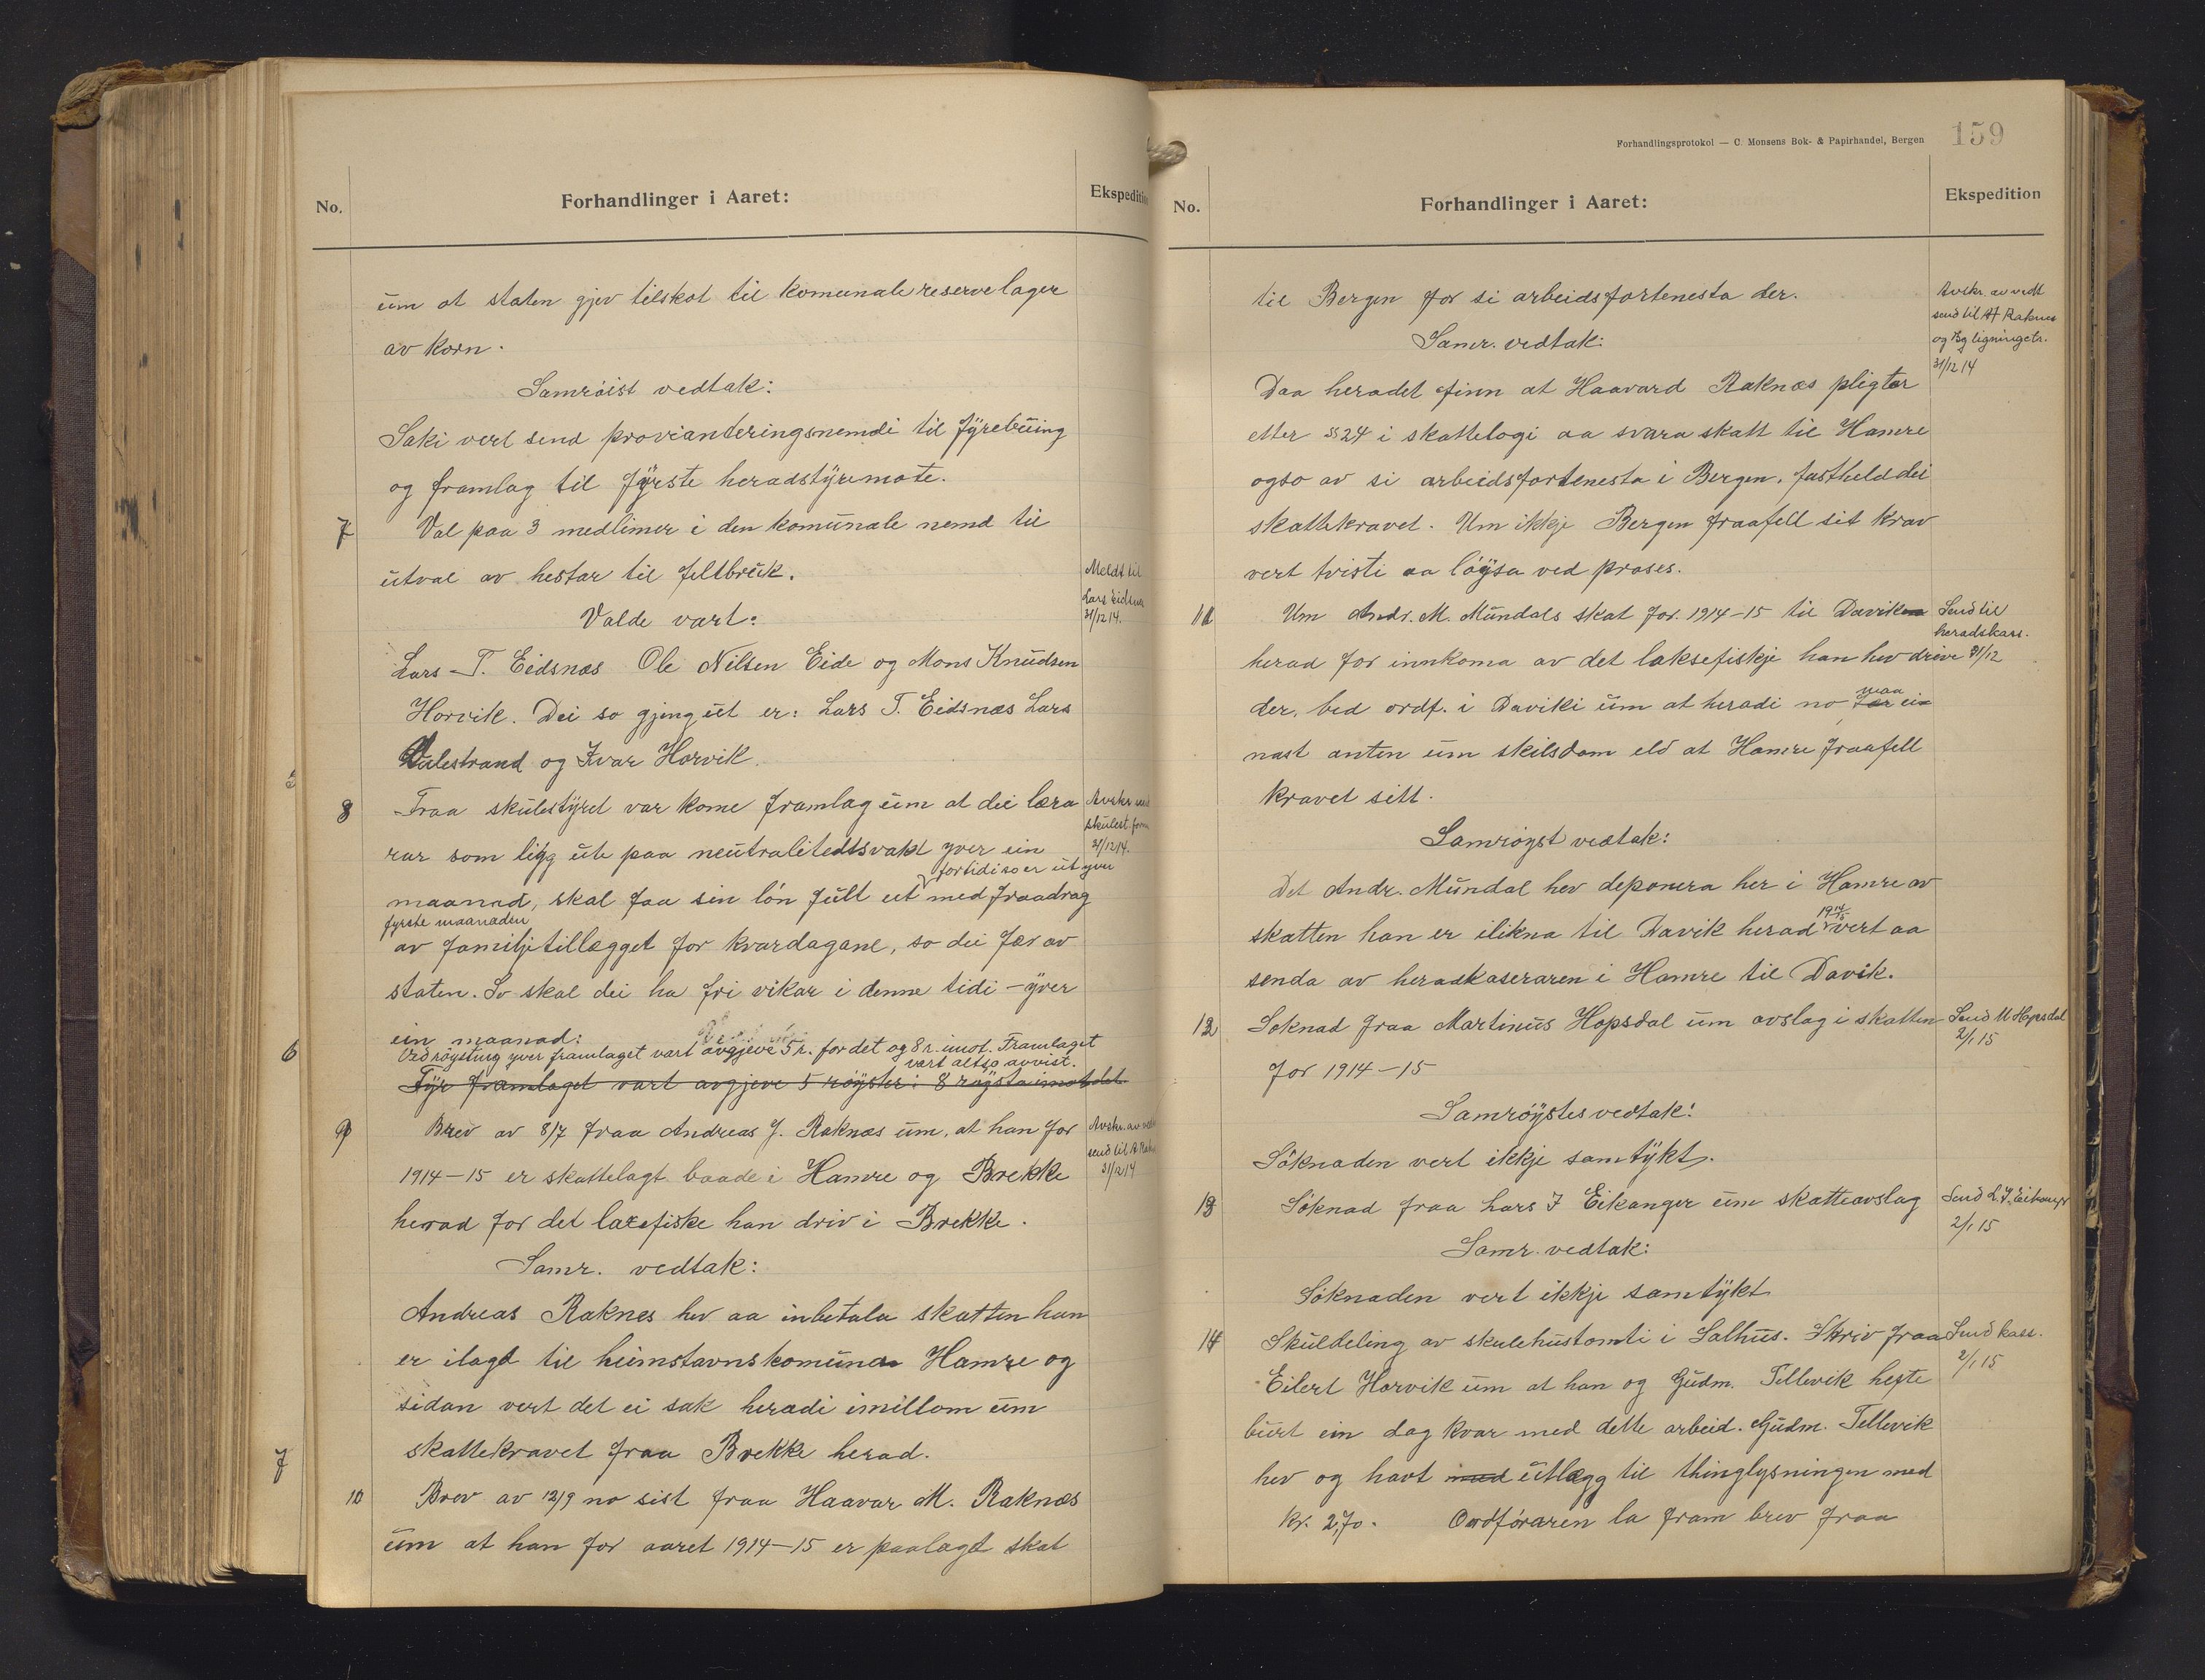 No.
Forhandlinger i Aaret:
Ekspedition
um at staten gjev tilskot til komunale reservelager
av korn.
Samröist vedtak:
Saki vert send provianteringsnemdi til fyrebuing
og framlag til fyrste heradstyremöte.
7 Val paa 3 medlimer i den komunale nemd til
utval av hestar til feltbruk.
Meldt til
Lars Eidsnes
31/12 14.
Valde vart:
Lars T. Eidsnæs Ole Nilsen Eide og Mons Knudsen
Horvik. Dei so gjeng ut er: Lars T. Eidsnæs Lars
Valestrand og Ivar Horvik.
8 Fraa skulestyret var kome framlag um at dei læra
Avskr. send
skulest. form
31/12 14.
rar som ligg ute paa neutralitedtsvakt yver ein
for tidi so er ut yver
maanad, skal faa sin lön fullt ut med fraadrag
fyrste maanaden
av familjetillægget for kvardagane, so dei fær av
staten. So skal dei ha fri vikar i denne tidi – yver
ein maanad:
6
Ved röysting yver framlaget vart avgjeve 5 r. for det og 8 r. imot. Framlaget
vart altso avvist.
Fyr framlaget vart avgjeve 5 röyster: 8 röysta imot det.
9 Brev av 8/7 fraa Andreas J. Raknæs um, at han for
Avskr. av vedt
send til A Rakn
31/12 14
1914–15 er skattelagt baade i Hamre og Brekke
herad for det laxefiske han driv i Brekke.
Samr. vedtak:
Andreas Raknes hev aa inbetala skatten han
er ilagd til heimstavnskomuna Hamre og
sidan vert det ei sak heradi imillom um
skattekravet fraa Brekke herad.
7
10 Brev av 12/9 no sist fraa Haavar M. Raknæs
um at han for aaret 1914–15 er paalagt skat
Forhandlingsprotokol — C. Monsens Bok- & Papirhandel, Bergen
159
No.
Forhandlinger i Aaret:
Ekspedition
til Bergen for si arbeidsfortenesta der.
Avskr. av vedt
send til H Raknes
og Bg ligningstr.
31/12 14
Samr. vedtak:
Daa heradet finn at Haavard Raknæs pligtar
etter § 24 i skattelogi aa svara skatt til Hamre
ogso av si arbeidsfortenesta i Bergen, fastheld dei
skattekravet. Um ikkje Bergen fraafell sit krav
vert tvisti aa löysa ved proses.
11 Um Andr. M. Mundals skat for 1914–15 til Davik
Send til
heradskass.
31/12
herad for innkoma av det laksefiskje han hev drive
der, bed ordf. i Daviki um at heradi no fær ei-
maa
nast anten um skilsdom eld at Hamre fraafell
kravet sitt.
Samröyst vedtak:
Det Andr. Mundal hev deponera her i Hamre av
skatten han er ilikna til Davik herad 1914/15 vert aa
senda av heradkaseraren i Hamre til Davik.
12 Soknad fraa Martinus Hopsdal um avslag i skatten
Send M Hopsdal
2/1 15
for 1914–15
Samröystes vedtak:
Söknaden vert ikkje samtykt.
13 Söknad fraa Lars J Eikanger um skatteavslag
Send L. J. Eikanger
2/1 15
Samr. vedtak:
Söknaden vert ikkje samtykt
14 Skuldeling av skulehustomti i Salhus. Skriv fraa
Send kass.
2/1 15
Eilert Horvik um at han og Gudm. Tellevik hefte
burt ein dag kvar med dette arbeid. Gudm. Tellevik
hev og havt med utlægg til thinglysningen med
kr. 2,70. Ordföraren la fram brev fraa